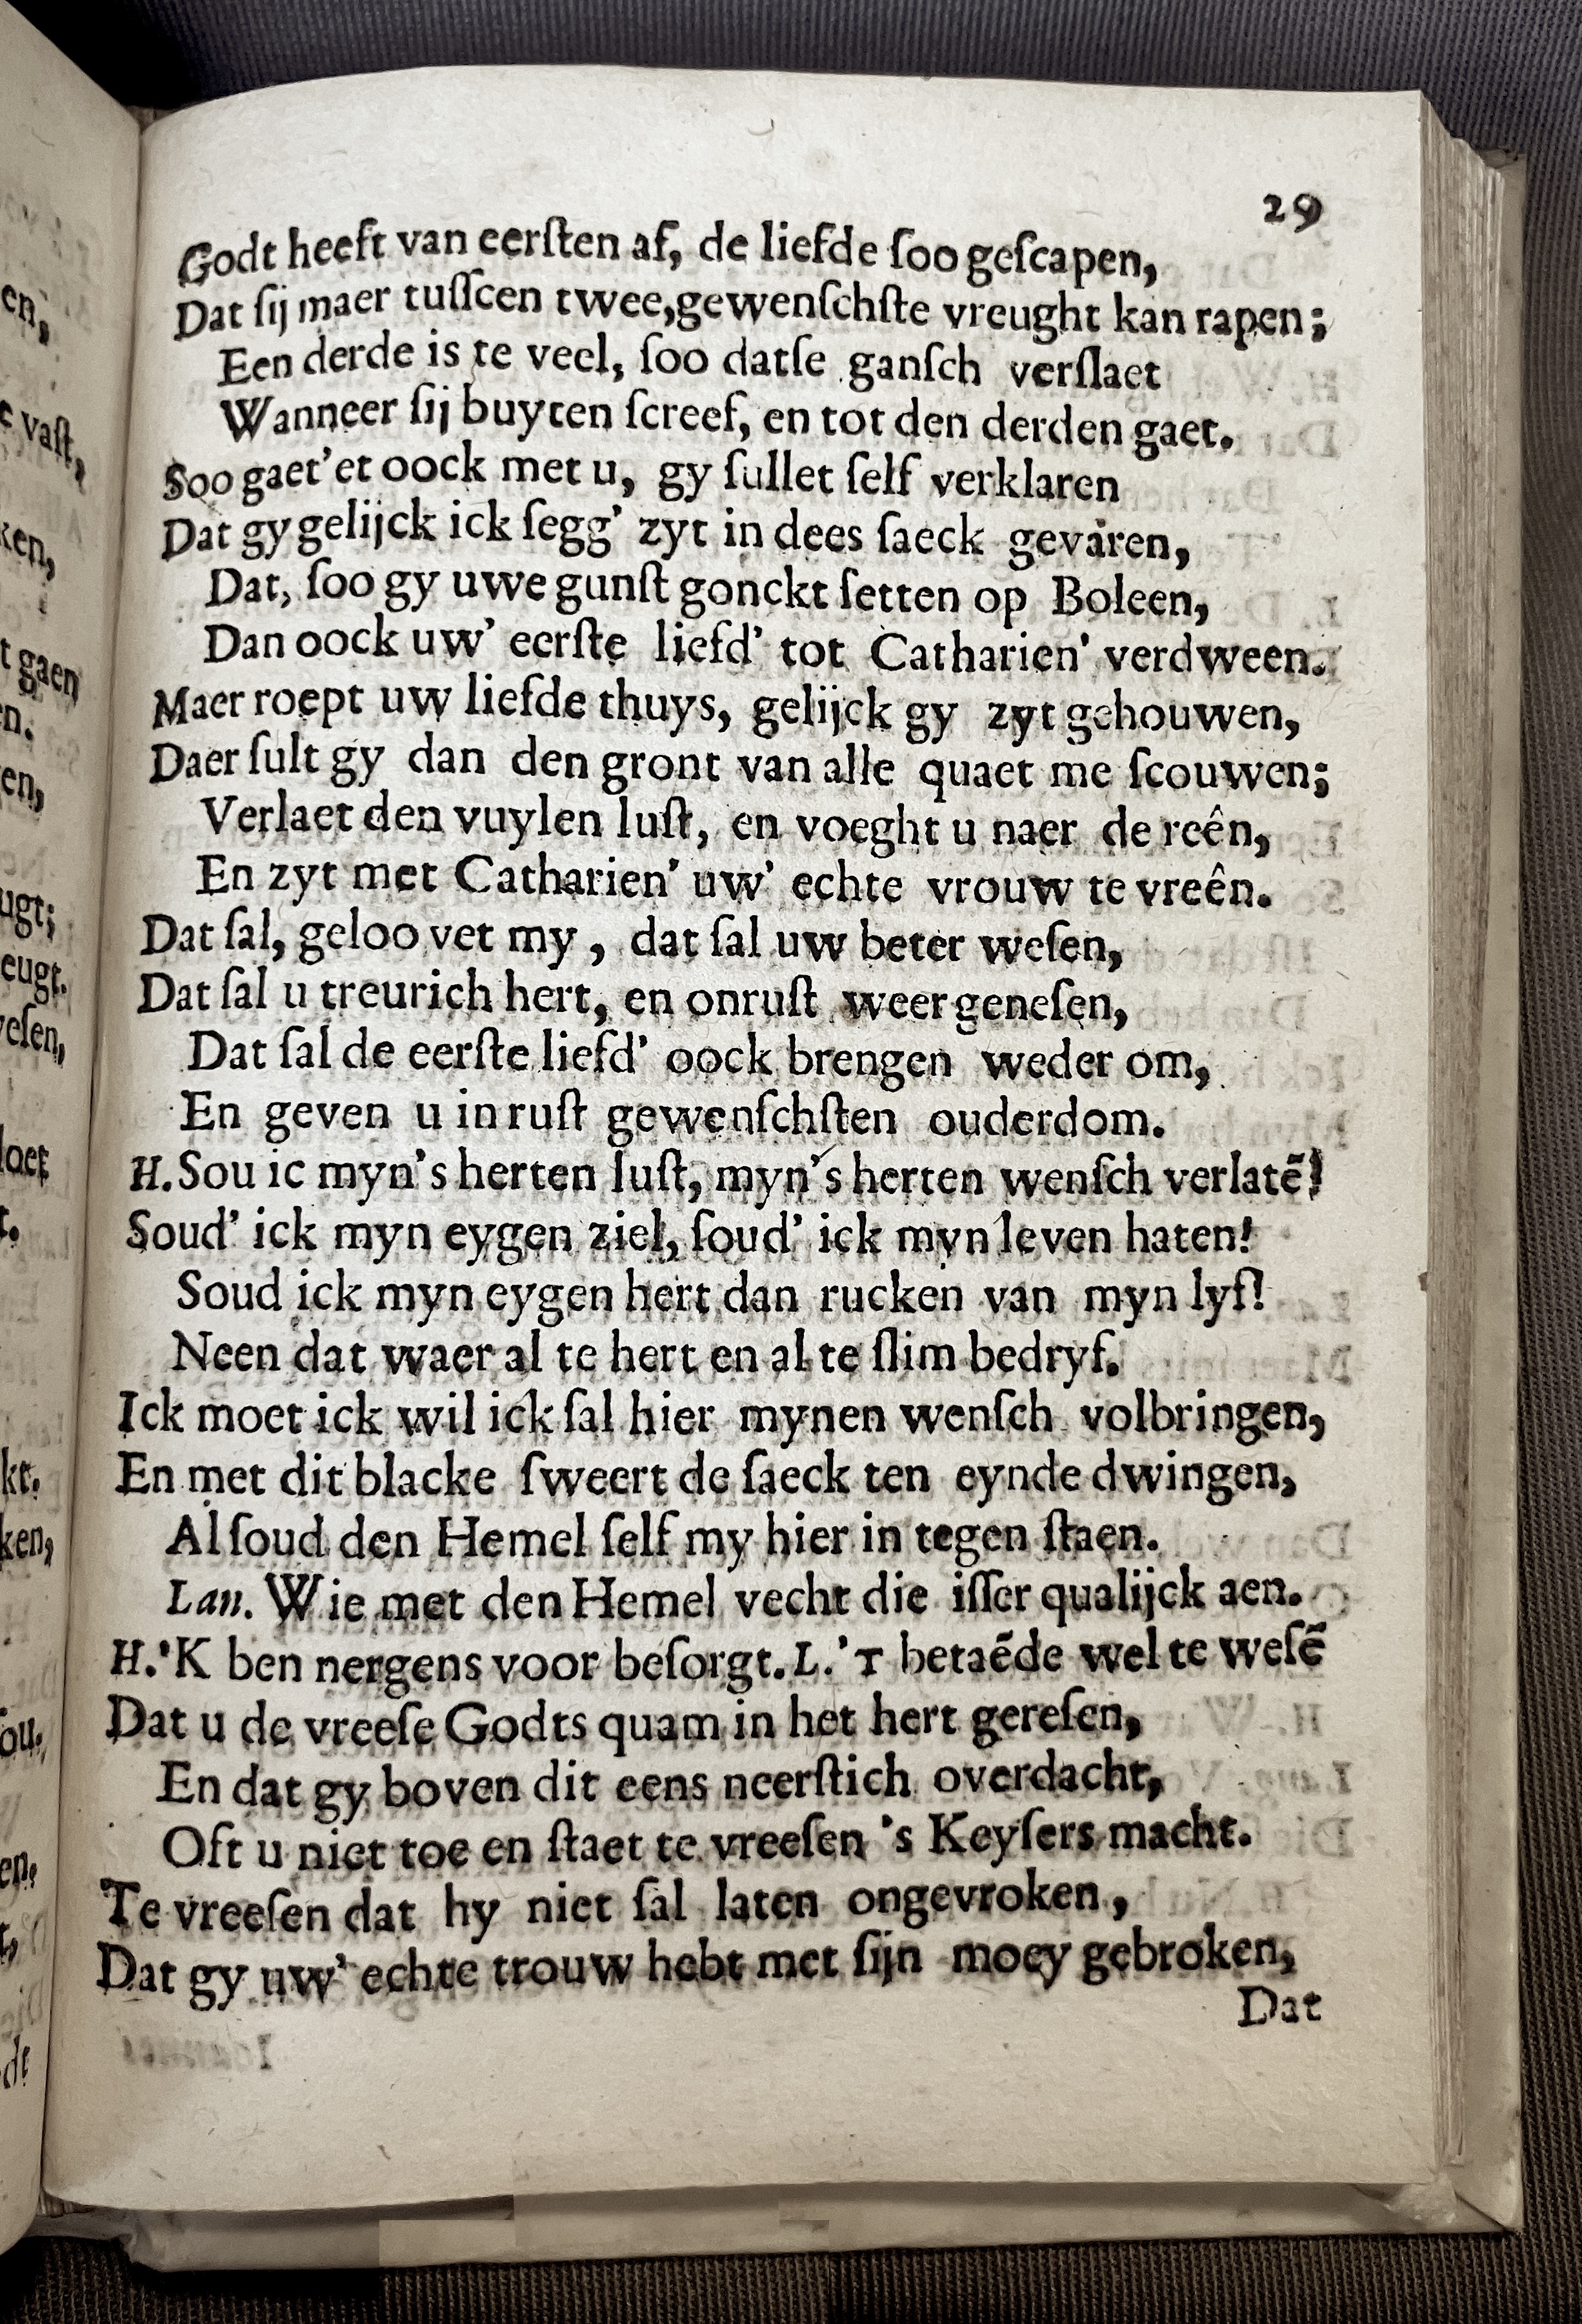 29
Godt heeft van eerſten af, de liefde ſoo geſcapen,
Dat ſij maer tuſſcen twee,gewenſchſte vreught kan rapen;
Een derde is te veel, ſoo datſe ganſch verſlaet
Wanneer ſij buyten ſcreef, en tot den derden gaet.
Soo gaet'et oock met u, gy ſullet ſelf verklaren
Dat gy gelijck ick ſegg' zyt in dees ſaeck gevaren,
Dat, ſoo gy uwe gunſt gonckt ſetten op Boleen,
Dan oock uw' eerſte liefd' tot Catharien' verdween.
Maer roept uw liefde thuys, gelijck gy zyt gehouwen,
Daer ſult gy dan den gront van alle quaet me ſcouwen;
Verlaet den vuylen luſt, en voeght u naer de reên,
En zyt met Catharien' uw' echte vrouw te vreên.
Dat ſal, geloo vet my, dat ſal uw beter weſen,
Dat ſal u treurich hert, en onruſt weer geneſen,
Dat ſal de eerſte liefd' oock brengen weder om,
En geven u in ruſt gewenſchſten ouderdom.
H. Sou ic myn's herten luſt, myn's herten wenſch verlatē!
Soud' ick myn eygen ziel, ſoud' ick myn leven haten!
Soud ick myn eygen hert dan rucken van myn lyf!
Neen dat waer al te hert en al te ſlim bedryf.
Ick moet ick wil ick ſal hier mynen wenſch volbringen,
En met dit blacke ſweert de ſaeck ten eynde dwingen,
Al ſoud den Hemel ſelf my hier in tegen ſtaen.
Lan. Wie met den Hemel vecht die iſſer qualijck aen.
H. 'K ben nergens voor beſorgt. L. 'T betaēde wel te weſē
Dat u de vreeſe Godts quam in het hert gereſen,
En dat gy boven dit eens neerſtich overdacht,
Oft u niet toe en ſtaet te vreeſen 's Keyſers macht.
Te vreeſen dat hy niet ſal laten ongevroken,
Dat gy uw' echte trouw hebt met ſijn moey gebroken,
Dat